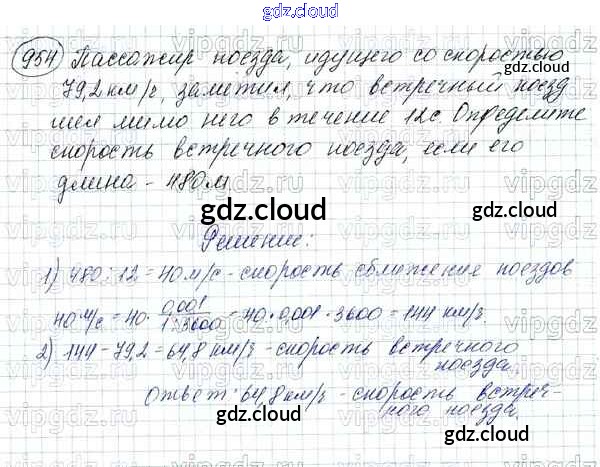 gdz.cloud
954 Пассажир поезда, идущего со скоростью
gdz.cloud
79,2 км/г, заметил, что встречный поезд
шел мимо него в течение 12с. Определите
скорость встречного поезда, если его
длина - 480м
gdz.cloud gdz.cloud
Решение:
1) 480 : 12 = 40 м/с - скорость сближения поездов
40 м/с = 40 · 0,001 / 1:3600 = 40 · 0,001 · 3600 = 144 км/г.
2) 144 - 79,2 = 64,8 км/г - скорость встречного
поезда.
gdz.cloud gdz.cloud
Ответ: 64,8 км/г - скорость встреч-
ного поезда.
gdz.cloud gdz.cloud